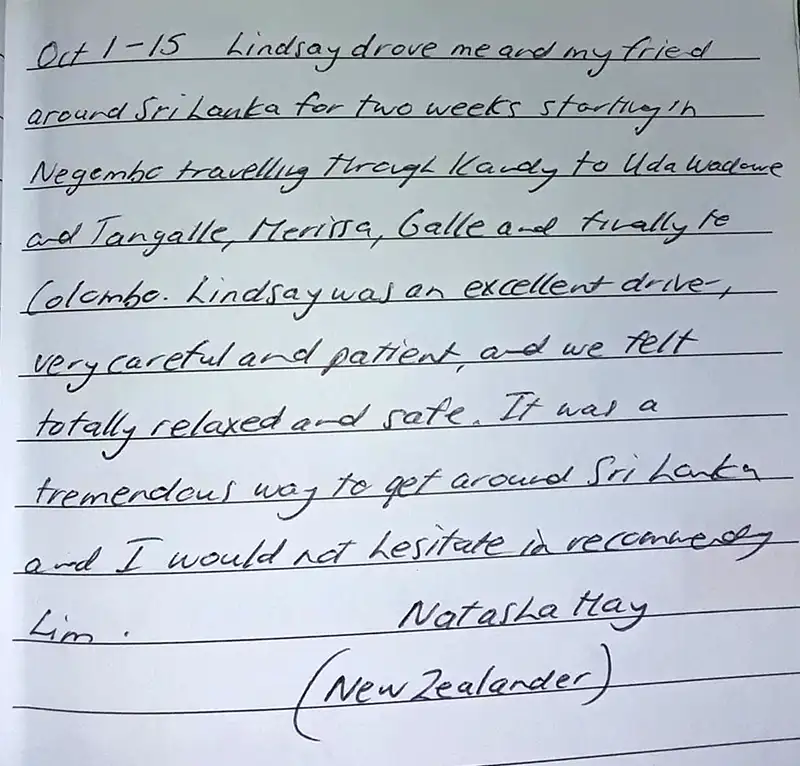 Oct 1-15 Lindsay drove me and my fried
around Sri Lanka for two weeks starting in
Negembo travelling through Kandy to Uda Wadawe
and Tangalle, Merissa, Galle and finally to
Colombo. Lindsay was an excellent driver,
very careful and patient, and we felt
totally relaxed and safe. It was a
tremendous way to get around Sri Lanka
and I would not hesitate in recommending
him.
Natasha Hay
(New Zealander)